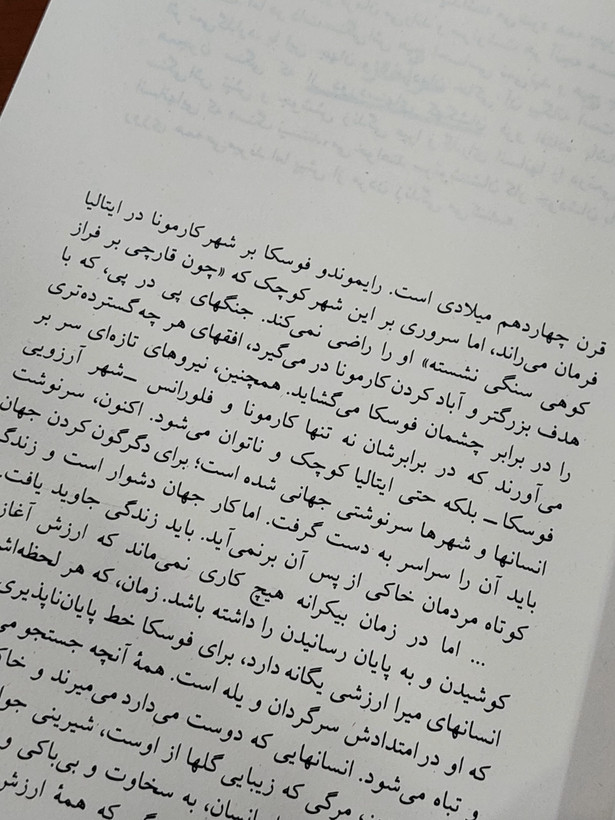 قرن چهاردهم میلادی است. رایموندو فوسکا بر شهر کارمونا در ایتالیا
فرمان می‌راند، اما سروری بر این شهر کوچک که «چون قارچی بر فراز
کوهی سنگی نشسته» او را راضی نمی‌کند. جنگهای پی در پی، که با
هدف بزرگتر و آباد کردن کارمونا در می‌گیرد، افقهای هر چه گسترده‌تری
را در برابر چشمان فوسکا می‌گشاید. همچنین، نیروهای تازه‌ای سر بر
می‌آورند که در برابرشان نه تنها کارمونا و فلورانس –شهر آرزویی
فوسکا– بلکه حتی ایتالیا کوچک و ناتوان می‌شود. اکنون، سرنوشت
انسانها و شهرها سرنوشتی جهانی شده است؛ برای دگرگون کردن جهان
باید آن را سراسر به دست گرفت. اما کار جهان دشوار است و
کوتاه مردمان خاکی از پس آن برنمی‌آید. باید زندگی جاوید یافت.
... اما در زمان بیکرانه هیچ کاری نمی‌ماند که ارزش آغاز
کوشیدن و به پایان رسانیدن را داشته باشد. زمان، که هر
انسانهای میرا ارزشی یگانه دارد، برای فوسکا خط پایان‌ناپذیری
که او در امتدادش سرگردان و یله است. همهٔ آنچه جستجو
و تباه می‌شود. انسانهایی که دوست می‌دارد می‌میرند و
مرگی که زیبایی گلها از اوست، شیرینی
انسان، به سخاوت و بی‌باکی و
که همهٔ ارزش